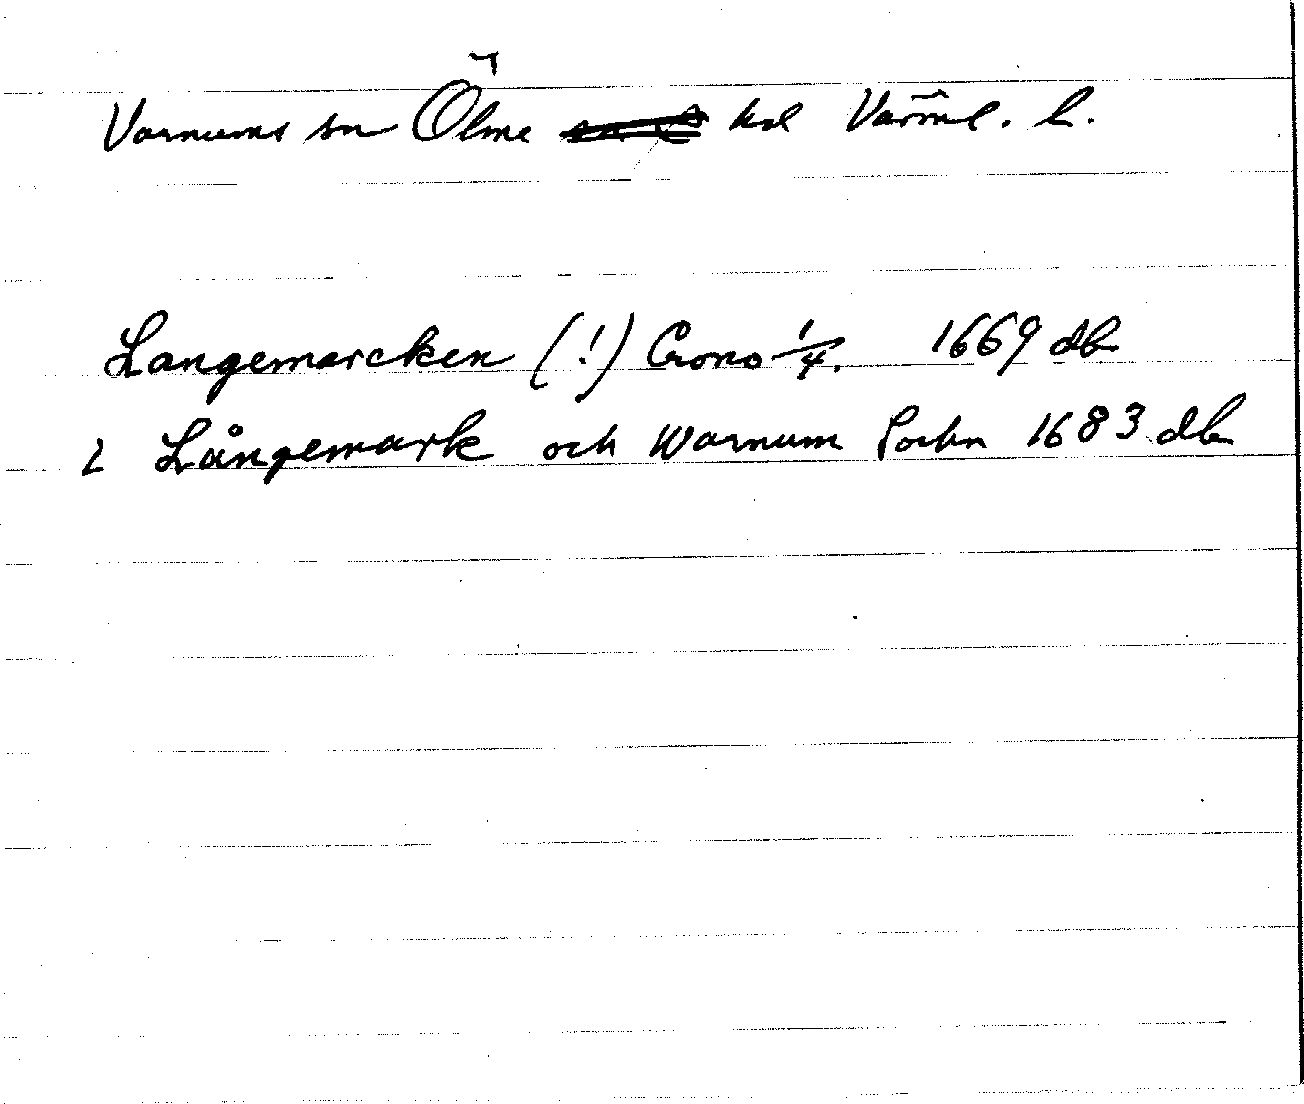 Varnums sn Ölme hd Värml. l.
Langemarcken (!) Crono 1/4. 1669 db
i Långemark och Warnum Sochn 1683 db